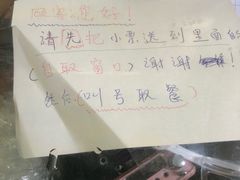 顾客您好！
请先把小票送到里面的
（自取窗口）谢谢！
然后（叫号取餐